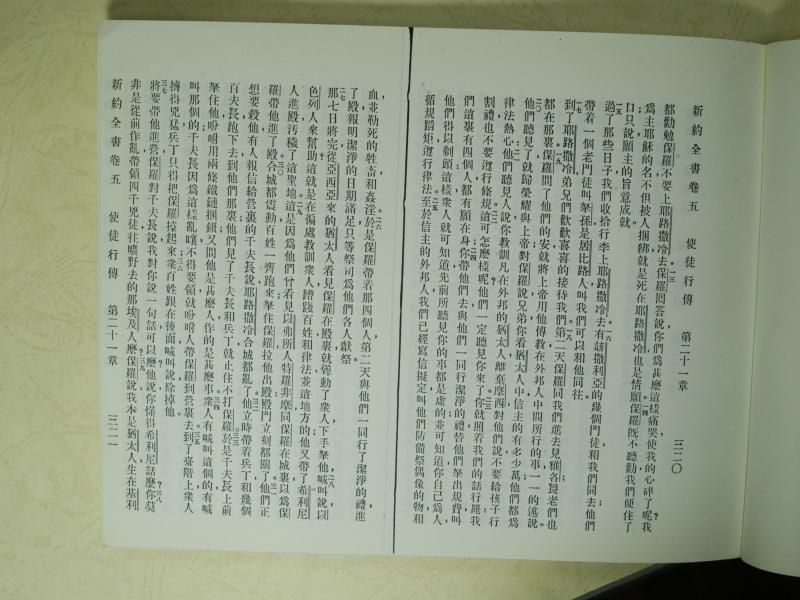 新約全書卷五 使徒行傳 第二十一章 三二〇
都勸勉保羅不要上耶路撒冷去。一三保羅回答說你們爲甚麼這樣痛哭使我的心碎了呢我
爲主耶穌的名不但被人捆綁就是死在耶路撒冷也是情願一四保羅旣不聽勸我們便住了
口只說願主的旨意成就
一五過了那些日子我們收拾行李上耶路撒冷去一六有該撒利亞的幾個門徒和我們同去他們
帶着一個老門徒叫拏孫是居比路人叫我們可以和他同住
一七到了耶路撒冷弟兄們歡歡喜喜的接待我們一八第二天保羅同我們進去見雅各長老們也
都在那裏一九保羅問了他們的安就將上帝用他傳教在外邦人中間所行的事一一的述說
二〇他們聽見了就歸榮耀與上帝對保羅說兄弟你看猶太人中信主的有多少萬他們都爲
律法熱心二一他們聽見人說你教訓凡在外邦的猶太人離棄摩西對他們說不要給孩子行
割禮也不要遵行條規二二這可怎麼樣呢他們一定聽見你來了二三你就照着我們的話行罷我
們這裏有四個人都有願在身二四你帶他們去與他們一同行潔淨的禮替他們拏出規費叫
他們得以剃頭這樣衆人就可知道先前所聽見你的事都是虛的並可知道你自己爲人
循規蹈矩遵行律法二五至於信主的外邦人我們已經寫信擬定叫他們防備祭偶像的物和
血並勒死的牲畜和姦淫二六於是保羅帶着那四個人第二天與他們一同行了潔淨的禮進
了殿報明潔淨的日期滿足只等祭司爲他們各人獻祭
二七那七日將完從亞西亞來的猶太人看見保羅在殿裏就聳動了衆人下手拏他二八喊叫說以
色列人來幫助這就是在徧處教訓衆人蹧踐百姓和律法並這地方的他又帶了希利尼
人進殿汚穢了這聖地二九這是因爲他們曾看見以弗所人特羅非摩同保羅在城裏以爲保
羅帶他進了殿三〇合城都震動百姓一齊跑來拏住保羅拉他出殿殿門立刻都關了三一他們正
想要殺他有人報信給營裏的千夫長說耶路撒冷合城都亂了三二他立時帶着兵丁和幾個
百夫長跑下去到他們那裏他們見了千夫長和兵丁就止住不打保羅三三於是千夫長上前
拏住他吩咐用兩條鐵鏈捆鎖又問他是甚麼人作的是甚麼事三四衆人有喊叫這個的有喊
叫那個的千夫長因爲這樣亂嚷不得要領就吩咐人帶保羅到營裏去三五到了臺階上衆人
擠得兇猛兵丁只得把保羅擡起來三六衆百姓跟在後面喊叫說除掉他
三七將要帶他進營保羅對千夫長說我對你說一句話可以麼他說你懂得希利尼話麼三八你莫
非是從前作亂帶領四千兇徒往曠野去的那埃及人麼三九保羅說我本是猶太人生在基利
新約全書卷五 使徒行傳 第二十一章 三二一